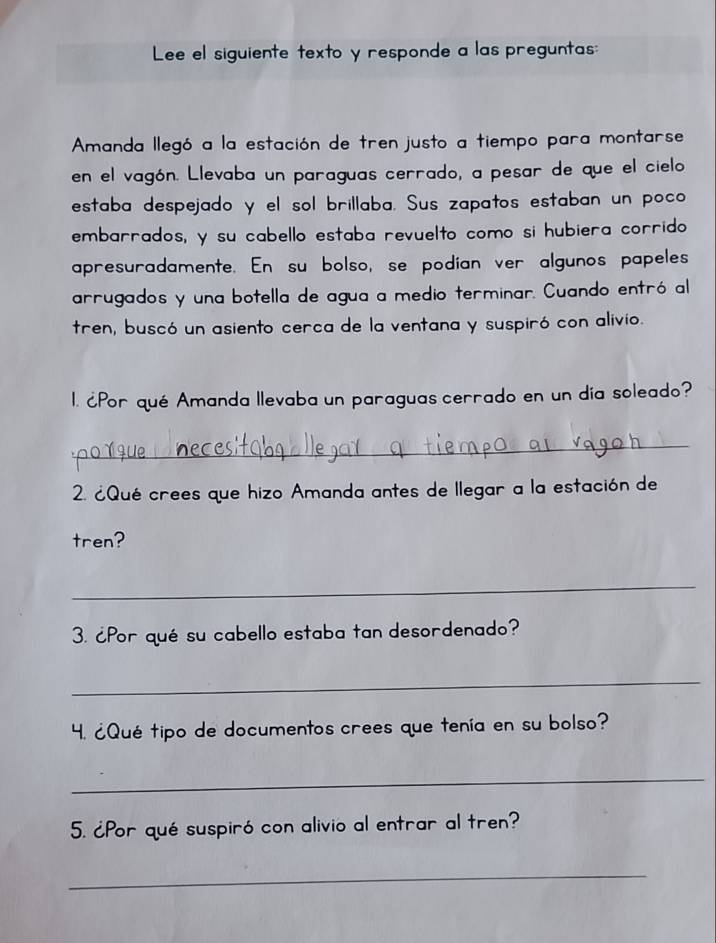 Lee el siguiente texto y responde a las preguntas:
Amanda llegó a la estación de tren justo a tiempo para montarse
en el vagón. Llevaba un paraguas cerrado, a pesar de que el cielo
estaba despejado y el sol brillaba. Sus zapatos estaban un poco
embarrados, y su cabello estaba revuelto como si hubiera corrido
apresuradamente. En su bolso, se podían ver algunos papeles
arrugados y una botella de agua a medio terminar. Cuando entró al
tren, buscó un asiento cerca de la ventana y suspiró con alivio.
1. ¿Por qué Amanda llevaba un paraguas cerrado en un día soleado?
porque necesitaba llegar a tiempo al vagon
2. ¿Qué crees que hizo Amanda antes de llegar a la estación de
tren?
3. ¿Por qué su cabello estaba tan desordenado?
4. ¿Qué tipo de documentos crees que tenía en su bolso?
5. ¿Por qué suspiró con alivio al entrar al tren?